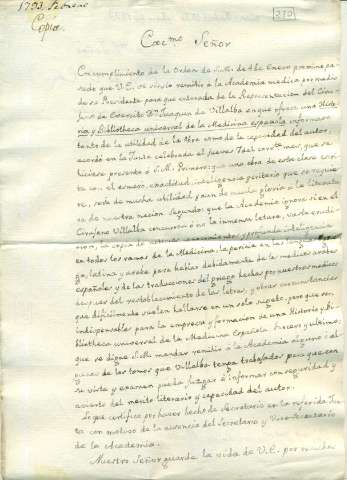 1793. Febrero
Copia
270
Excmo. Señor
En cumplimiento de la Orden de S.M. de 4 de Enero proximo pa-
sado que V.E. se sirvió remitir a la Academia medica por medio
de su Presidente para que enterada de la Representacion del Ciru-
jano de Exercito Dn. Joaquin de Villalba en que ofrece una Histo-
ria y Bibliotheca universal de la Medicina española informara
tanto de la utilidad de la obra como de la capacidad del autor,
acordó en la Junta celebrada el jueves 7 del corrte. mes, que se
hiciera presente á S.M. Primero: que una obra de esta clase escri-
ta con el esmero, exactitud, inteligencia y criterio que se requie-
re, será de mucha utilidad y aun de mucha gloria a la literatu-
ra de nuestra nacion. Segundo: que la Academia ignora si en el
Cirujano Villalba concurren ó no la inmensa letura, vasta erudi-
cion, la copia de
en todos los ramos de la Medicina, la pericia en las lenguas Grie-
ga, latina y arabe para hablar debidamente de los medicos arabes
españoles y de las traducciones del griego hechas por nuestros medicos
despues del restablecimiento de las letras, y otras circunstancias
que dificilmente suelen hallarse en un solo sugeto, pero que son
indispensables para la empresa y formacion de una Historia y Bi-
bliotheca universal de la Medicina Española. Tercero y ultimo:
que se digne S.M. mandar remitir á la Academia alguno ó al-
gunos de los tomos que Villalba tenga trabajados para que con
su vista y examen pueda juzgar é informar con seguridad y
acierto del merito literario y capacidad del autor.
Lo que certifico por haver hecho de Secretario en la referida Jun-
ta con motivo de la ausencia del Secretario y Vice-Secretario
de la Academia.
Nuestro Señor guarde la vida de V.E. por muchos